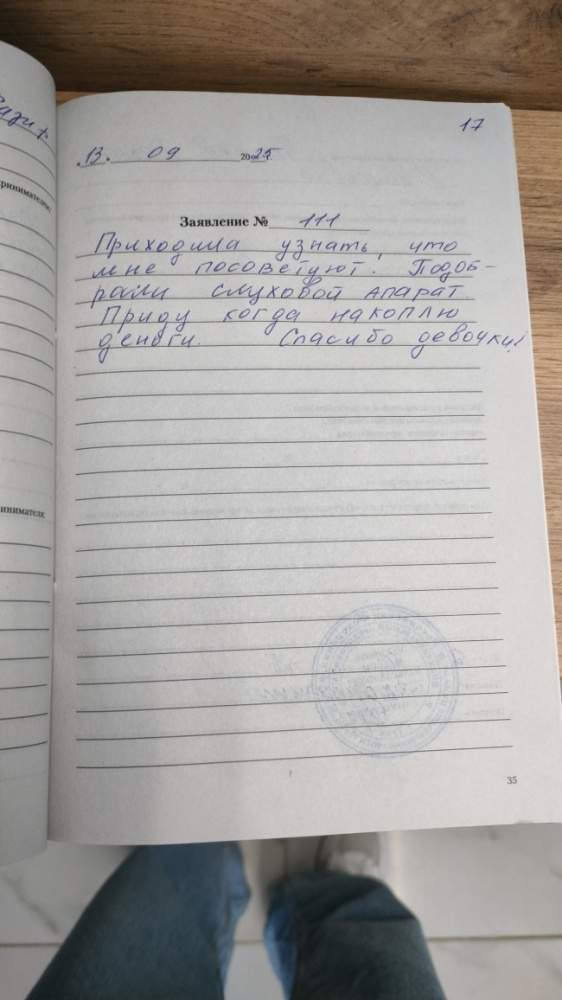 17
13. 09 2025
Заявление № 111
Приходила узнать, что
мне посоветуют. Подоб-
рали слуховой апарат.
Приду когда накоплю
деньги. Спасибо девочки!
35